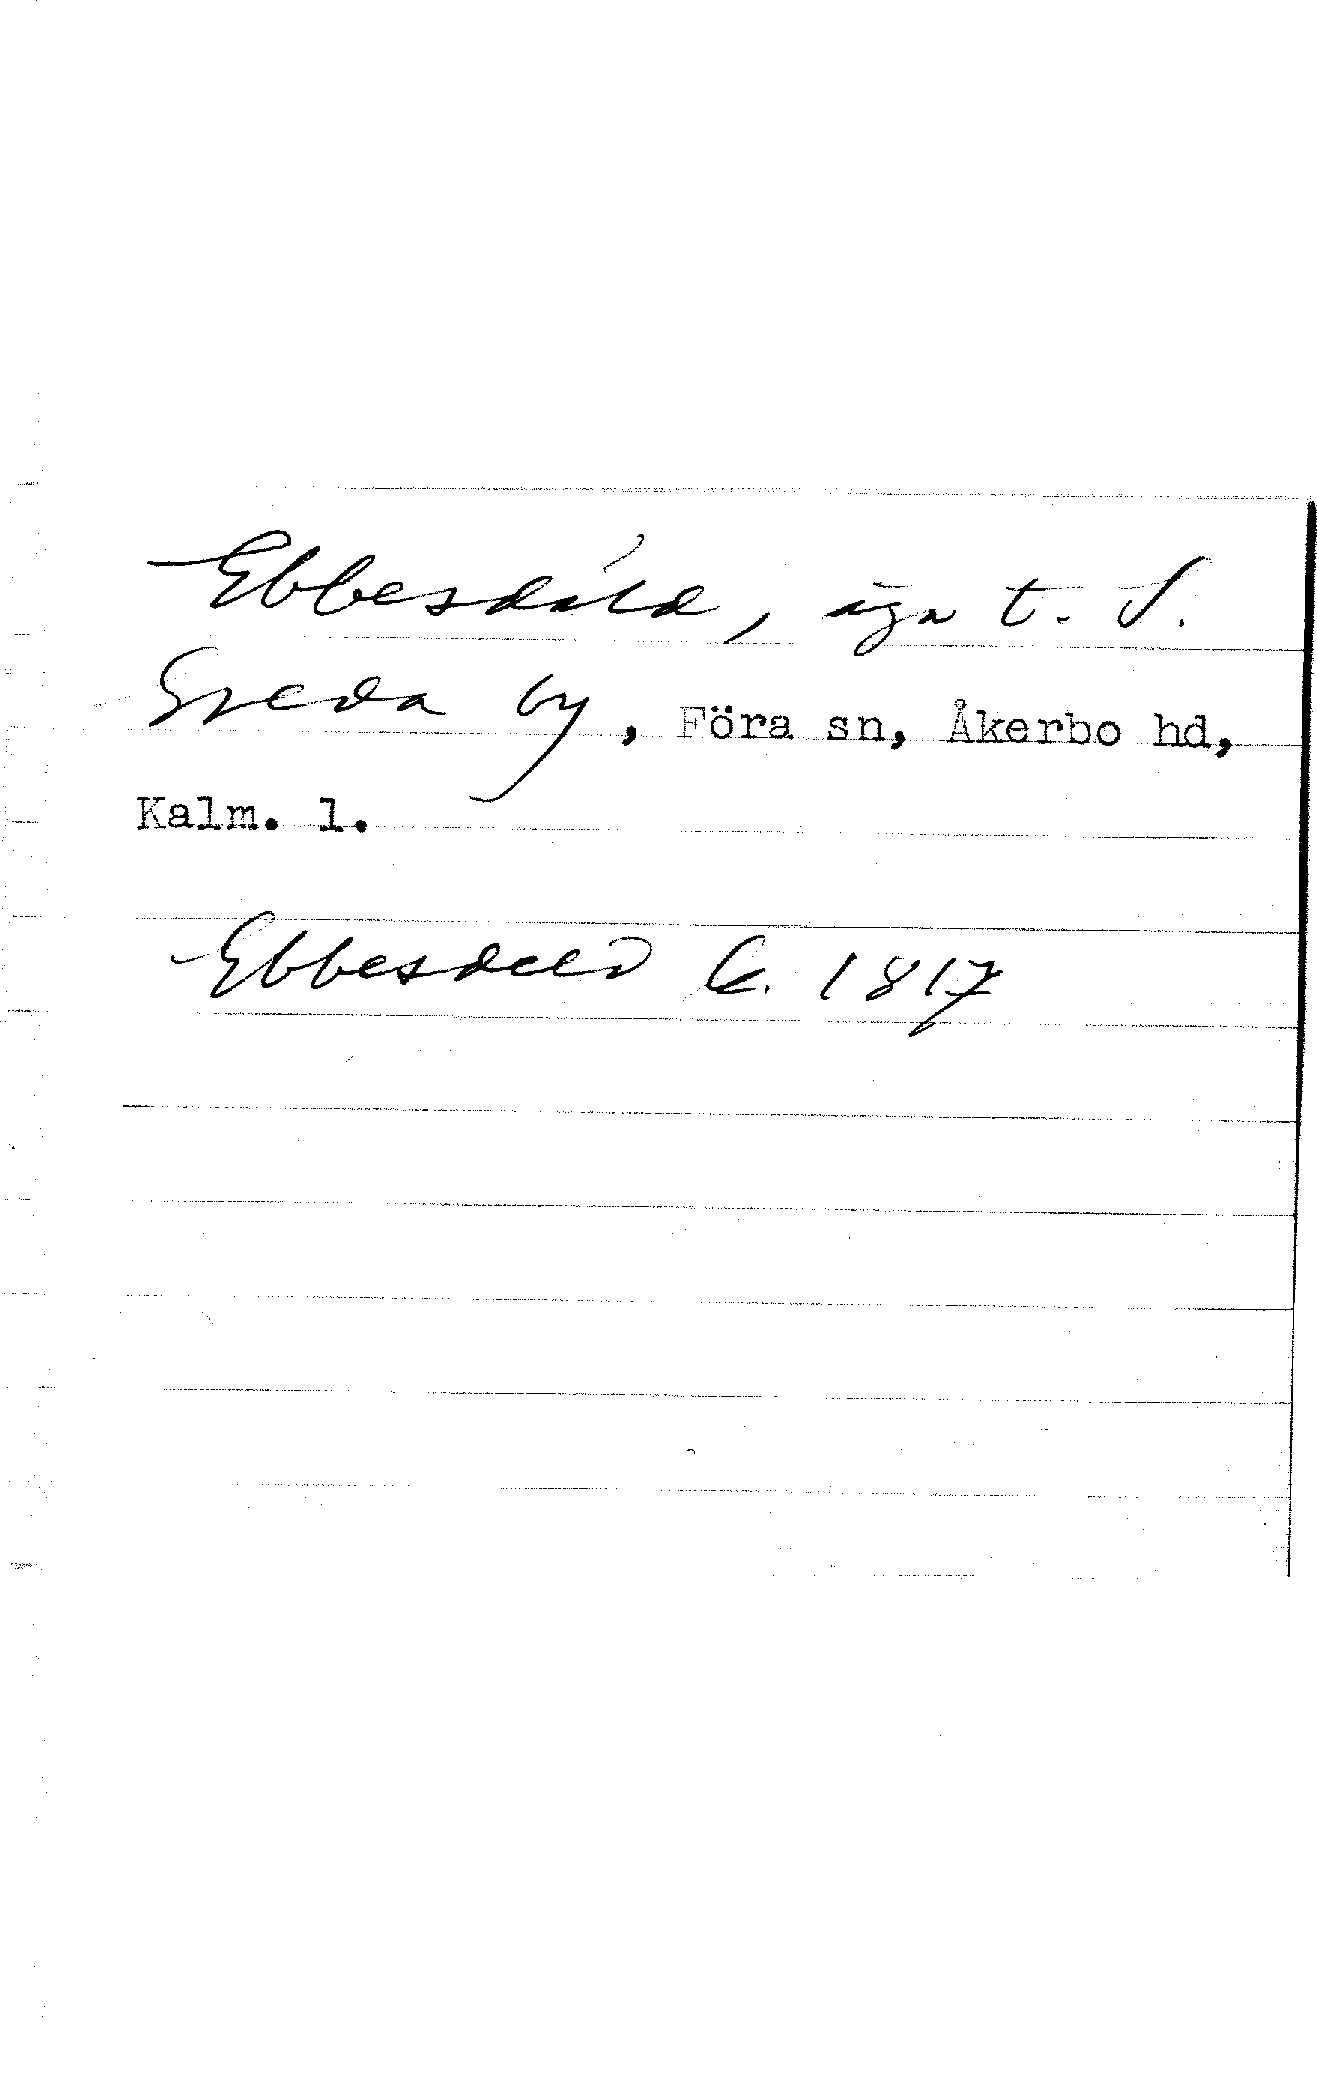 Ebbesdäld, äga t. S.
Greda by, Föra sn, Åkerbo hd,
Kalm. l.
Ebbesdeld 1817